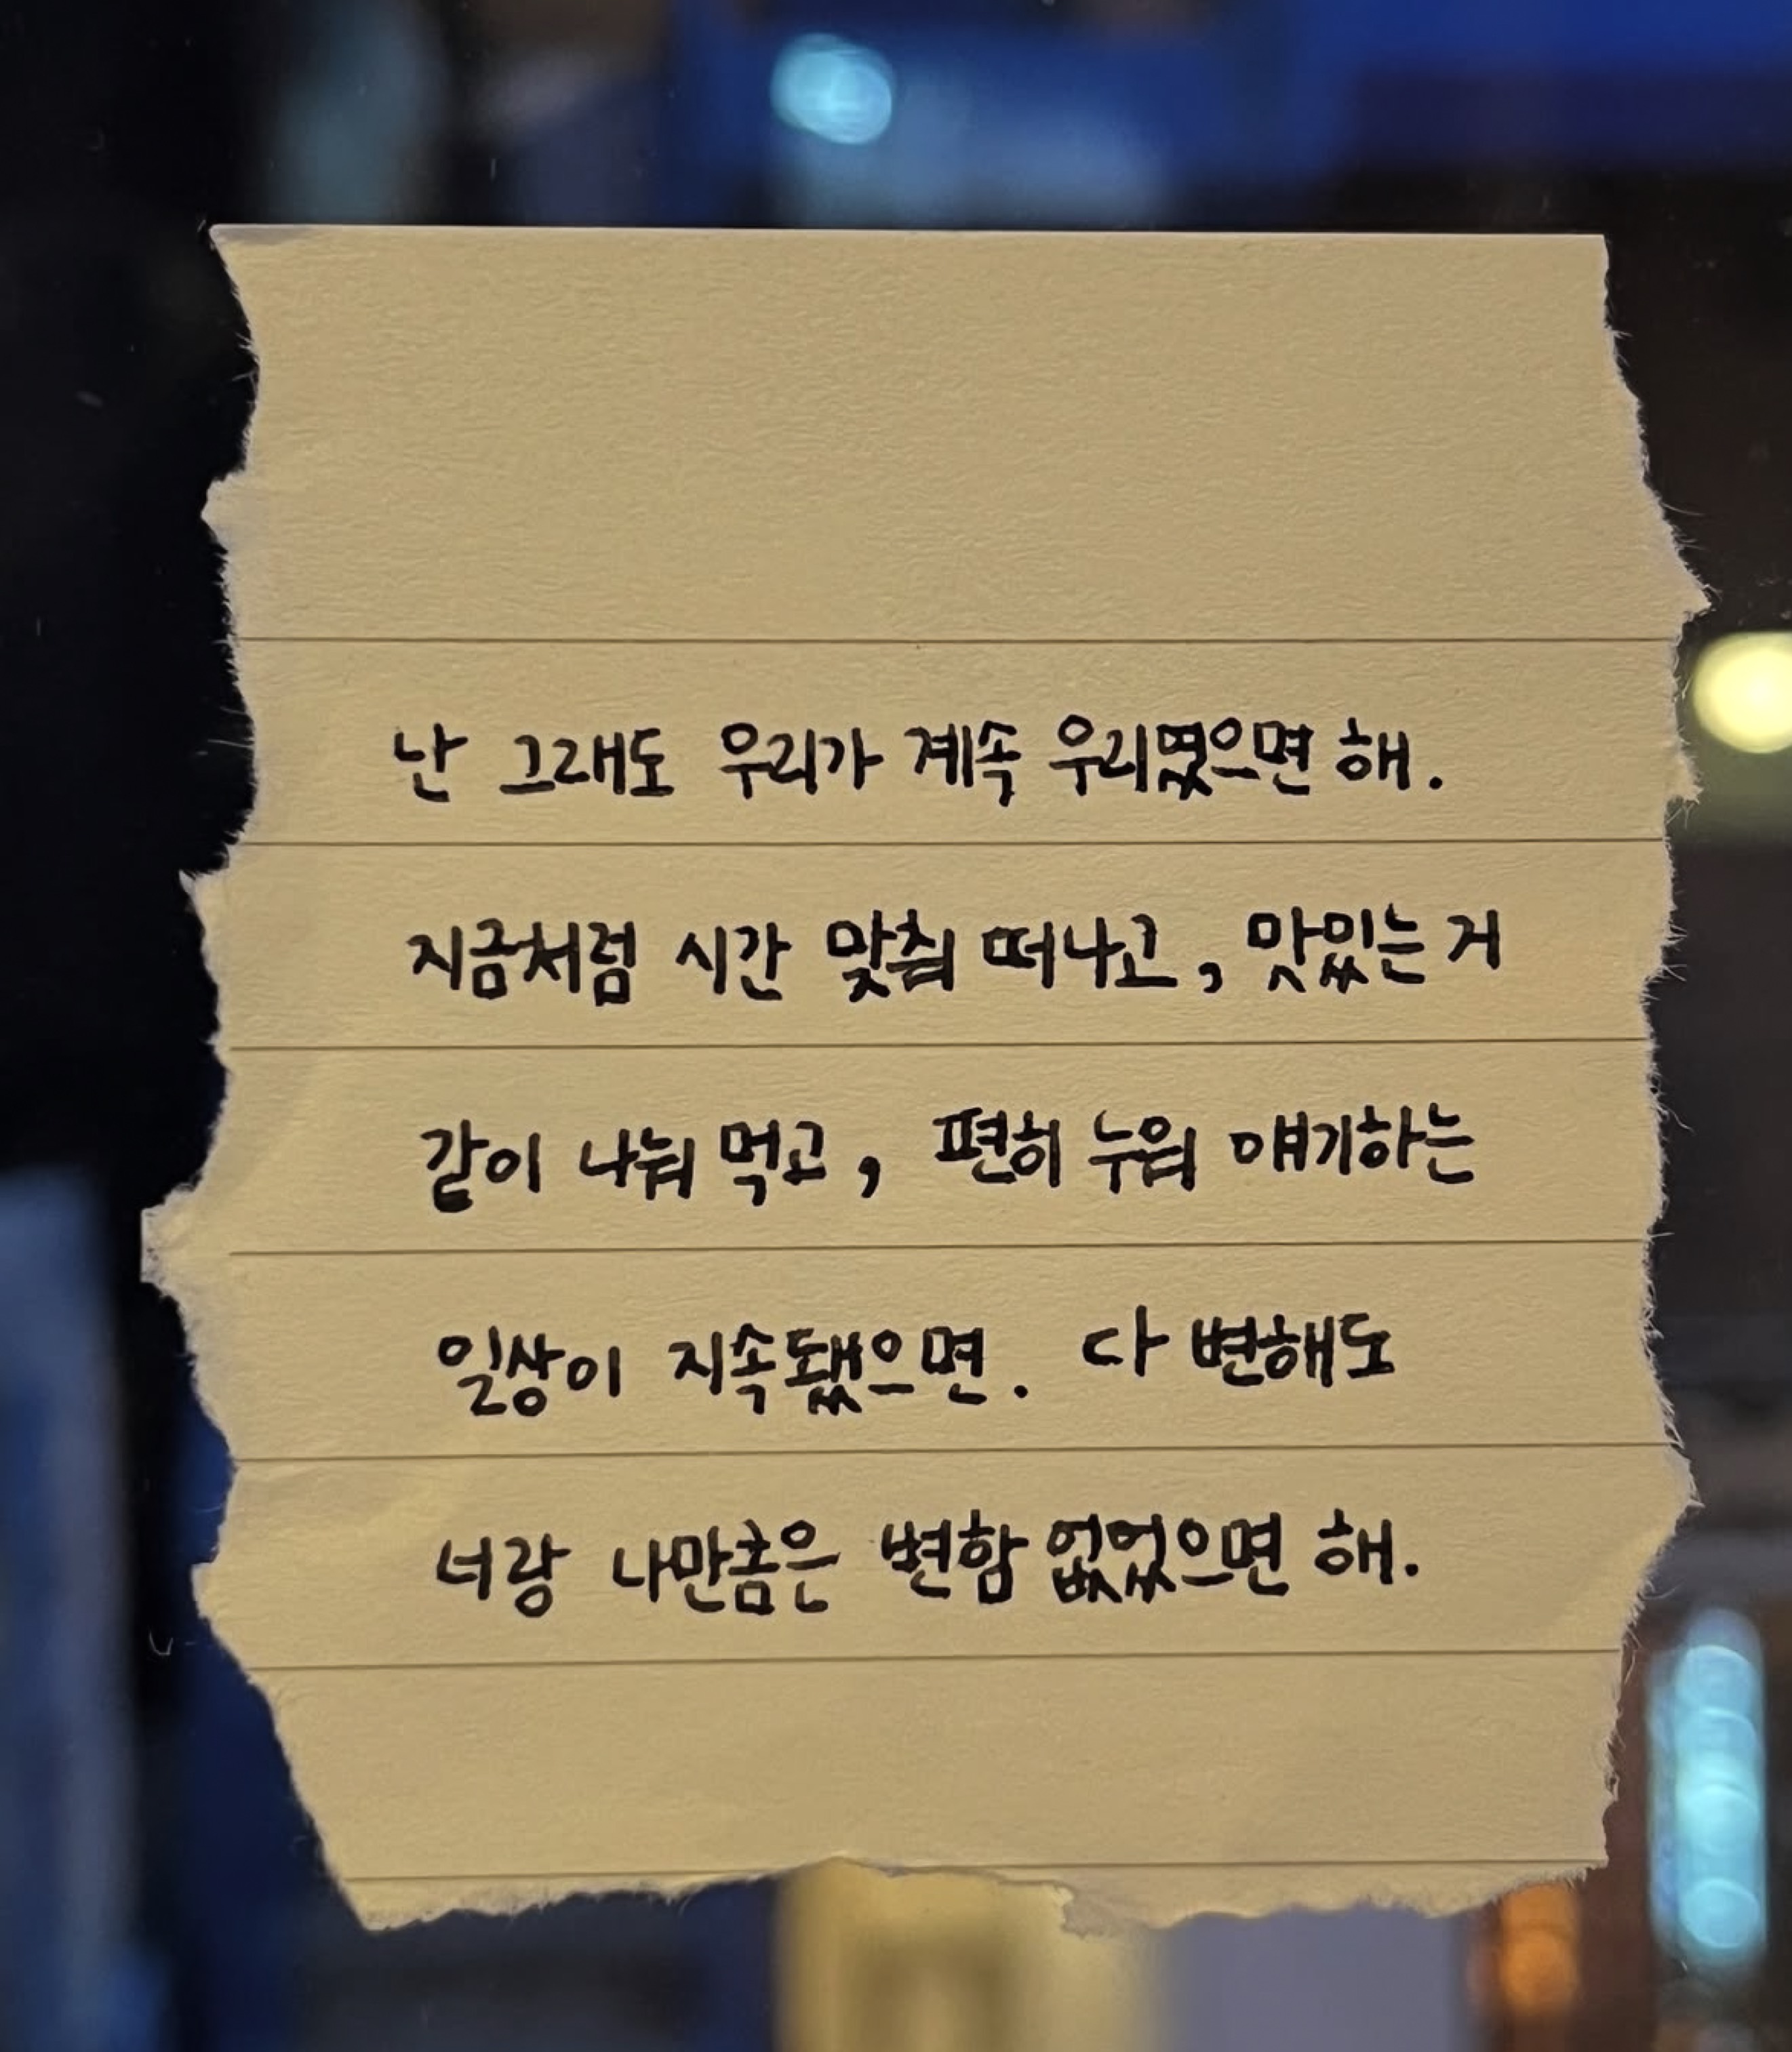 난 그래도 우리가 계속 우리였으면 해.
지금처럼 시간 맞춰 떠나고, 맛있는 거
같이 나눠 먹고, 편히 누워 얘기하는
일상이 지속됐으면. 다 변해도
너랑 나만큼은 변함 없었으면 해.